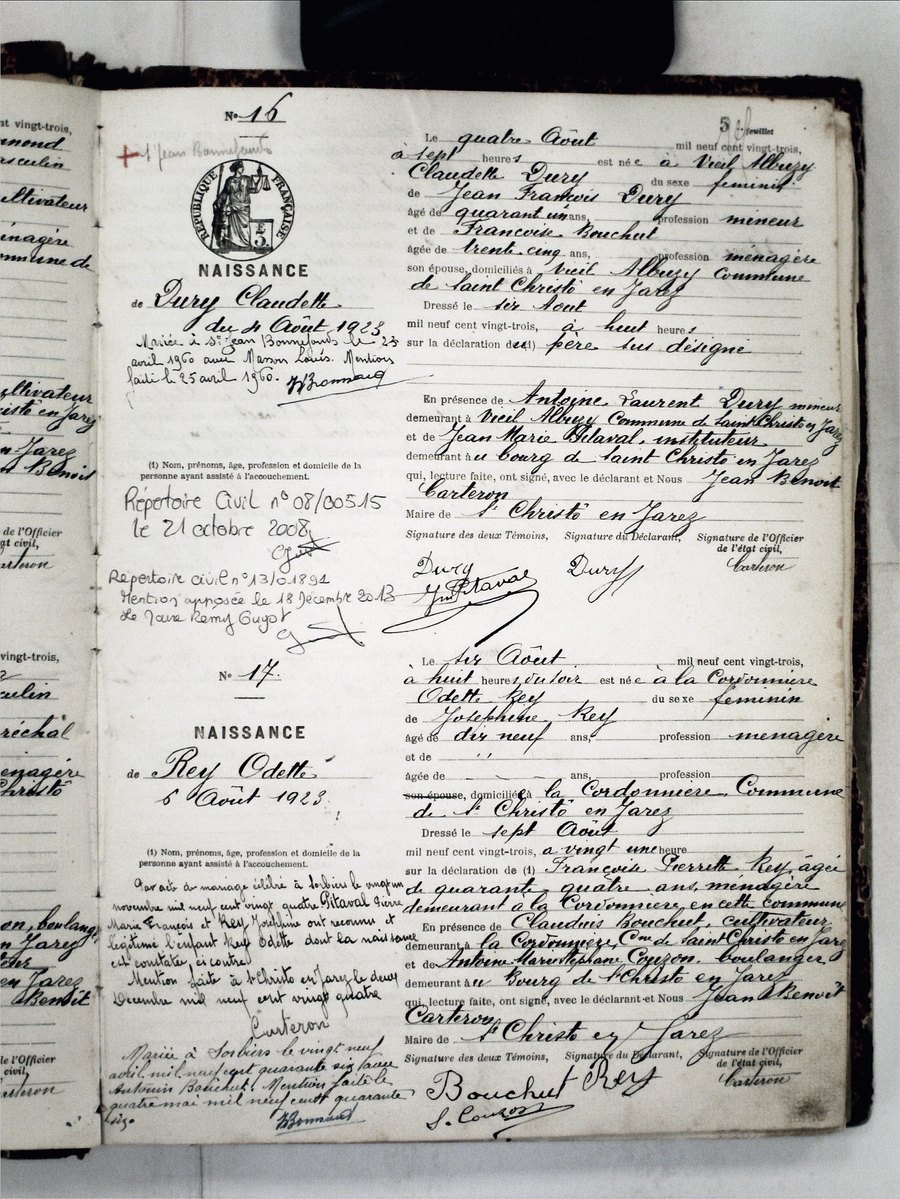 nt vingt-trois,
mond
asculin
ultivateur
énagère
ommune de
ultivateur
isto en Jarez
n Jarez
n Benoit
de l'Officier
at civil,
arteron
vingt-trois,
culin
réchal
enagère
Christo
on, boulang
n Jarez
en Jarez
Benoit
de l'Officier
civil,
arteron
N° 16
+ St Jean Bonnefonds
RÉPUBLIQUE FRANÇAISE
NAISSANCE
de Dury Claudette
du 4 Août 1923
Mariée à St Jean Bonnefonds le 23
avril 1960 avec Masson Louis. Mention
faite le 25 avril 1960.
(1) Nom, prénoms, âge, profession et domicile de la
personne ayant assisté à l'accouchement.
Répertoire Civil n° 08/00515
le 21 octobre 2008
Répertoire civil n° 13/01891
Mention apposée le 18 Décembre 2013
Le Maire Remy Guyot
5 feuillet
Le quatre Août mil neuf cent vingt-trois,
à sept heures est née à Vieil Albuzy
Claudette Dury du sexe féminin
de Jean François Dury
âgé de quarant un ans, profession mineur
et de Francoise Bouchut
âgée de trente cinq ans, profession ménagère
son épouse, domiciliés à Vieil Albuzy Commune
de Saint Christô en Jarez
Dressé le six Aout
mil neuf cent vingt-trois, à huit heures
sur la déclaration du (1) père sus désigné
En présence de Antoine Laurent Dury mineur
demeurant à Vieil Albuzy Commune de Saint Christo en Jarez
et de Jean Marie Pitaval, instituteur
demeurant au bourg de Saint Christo en Jarez
qui, lecture faite, ont signé, avec le déclarant et Nous Jean Benoit
Carteron
Maire de St Christô en Jarez
Signature des deux Témoins, Signature du Déclarant, Signature de l'Officier
de l'état civil,
Dury Dury Carteron
Jm Pitaval
N° 17.
NAISSANCE
de Rey Odette
6 Août 1923
(1) Nom, prénoms, âge, profession et domicile de la
personne ayant assisté à l'accouchement.
Par acte de mariage célébré à Sorbiers le vingt un
novembre mil neuf cent vingt quatre Pitaval Pierre
Marie François et Rey Joséphine ont reconnu et
légitimé l'enfant Rey Odette dont la naissance
est constatée ci contre
Mention faite à St Christo en Jarez le deux
Decembre mil neuf cent vingt quatre
Carteron
Mariée à Sorbiers le vingt neuf
avril mil neuf cent quarante six avec
Antonin Bouchut. Mention faite le
quatre mai mil neuf cent quarante
six.
Le six Août mil neuf cent vingt-trois,
à huit heures du soir est née à la Cordonniere
Odette Rey du sexe féminin
de Joséphine Rey
âgé de dix neuf ans, profession menagère
et de "
âgée de ans, profession
son épouse, domiciliée à la Cordonniere, Commune
de St Christô en Jarez
Dressé le sept Août
mil neuf cent vingt-trois, a vingt une heure
sur la déclaration de (1) Françoise Pierrette Rey, âgée
de quarante quatre ans, menagère
demeurant à la Cordonniere, en cette commune
En présence de Claudius Bouchut, cultivateur
demeurant à la Cordonniere, Cne de Saint Christo en Jarez
et de Antoine Marie Stéphane Couzon, boulanger
demeurant au Bourg de St Christo en Jarez
qui, lecture faite, ont signé, avec le déclarant et Nous Jean Benoit
Carteron
Maire de St Christo en Jarez
Signature des deux Témoins, Signature du Déclarant, Signature de l'Officier
de l'état civil,
Bouchut Rey Carteron
S. Couzon